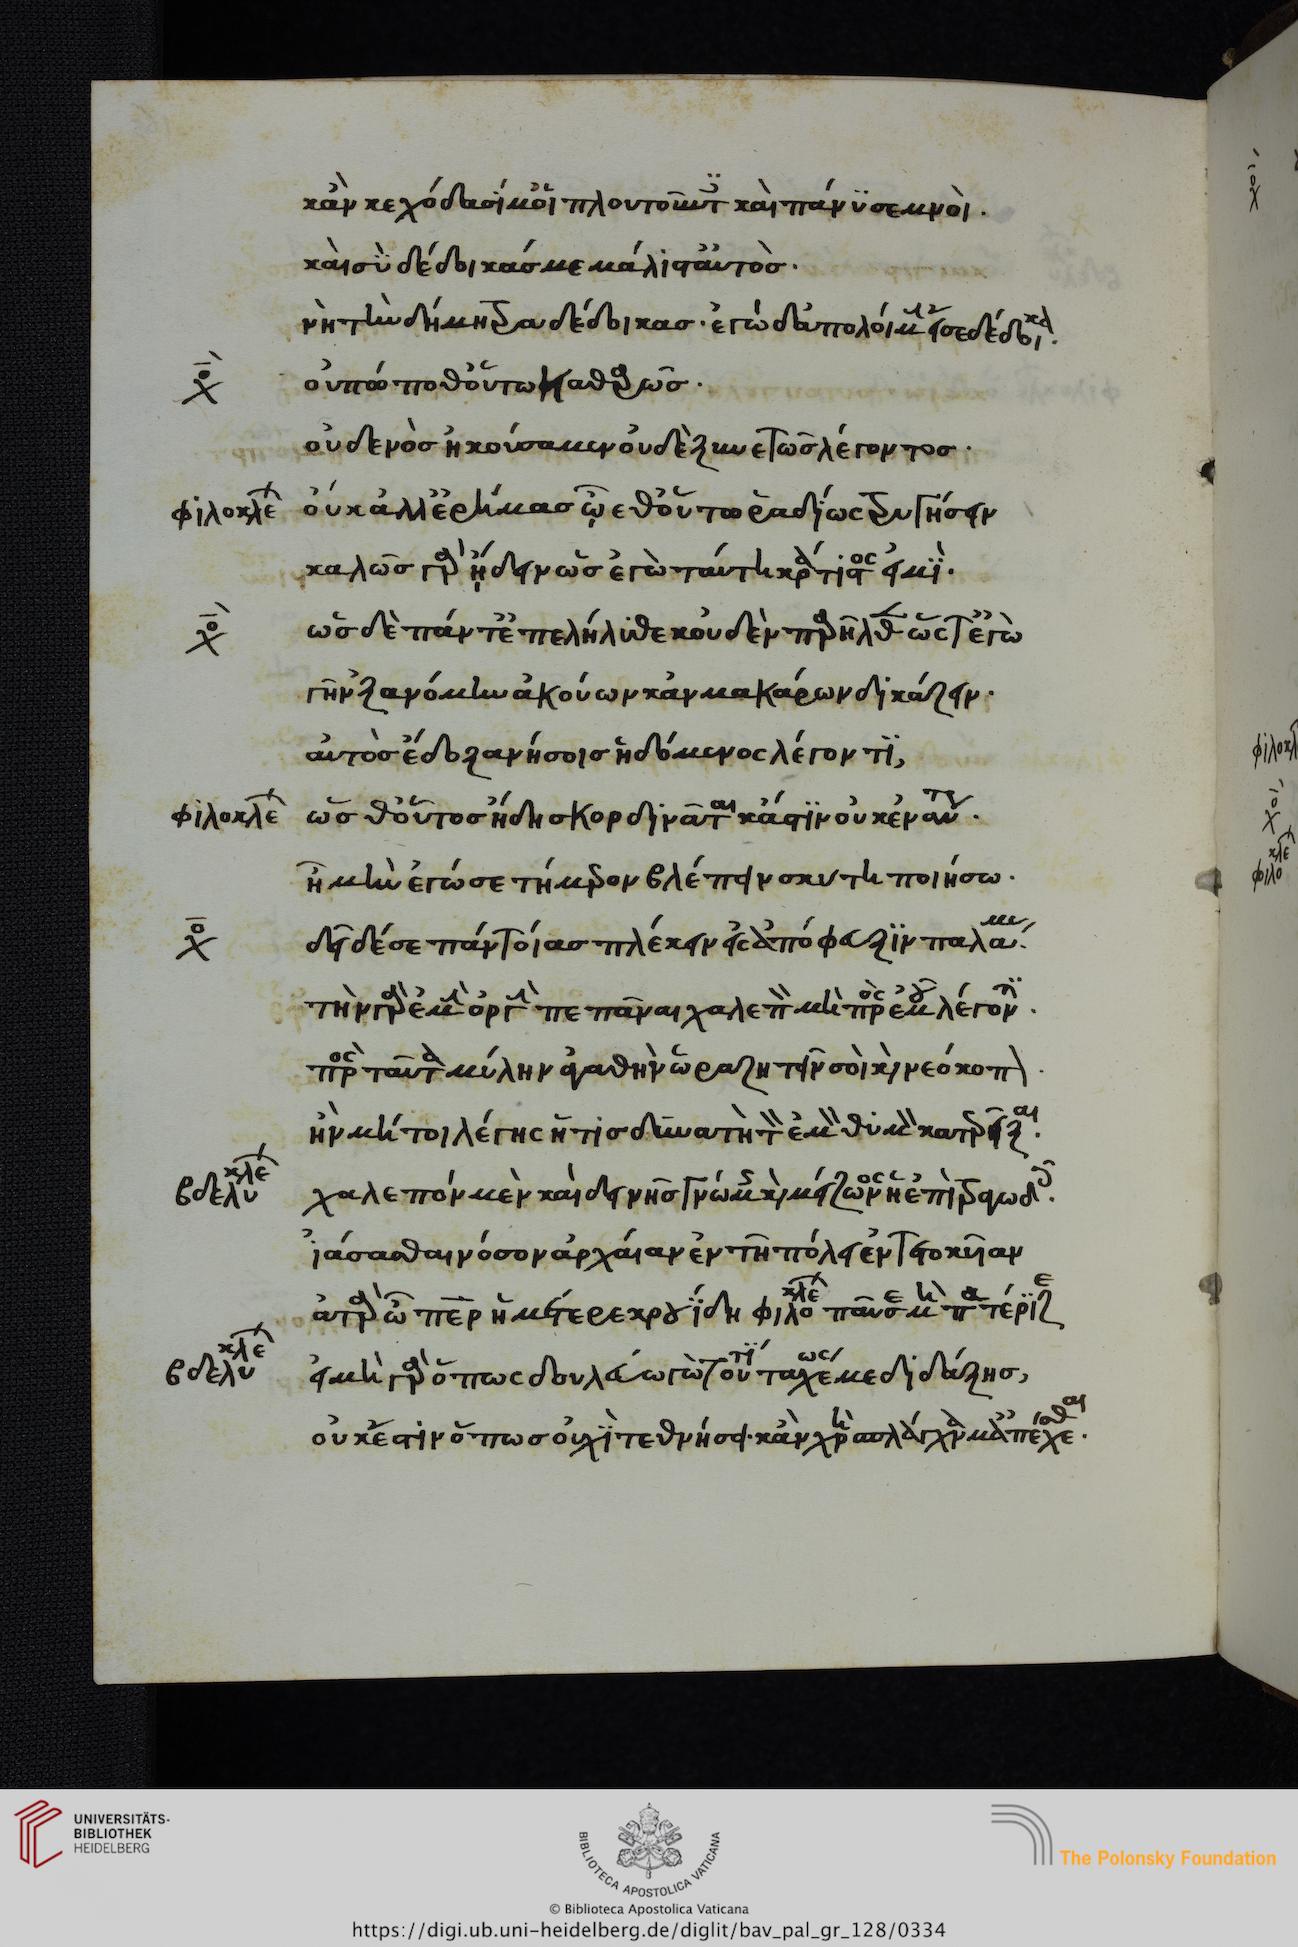 κἀν κεχόδασί μ' οἱ πλουτοῦντ καὶ πάνυ σεμνοὶ.
καὶ σὺ δέδοικάς με μάλιστ' αὐτὸς.
νὴ τὴν δήμητρα δέδοικας. ἐγὼ δ' ἀπολοίμην εἴ σε δέδοικα.
χο οὐπώποθ' οὕτω καθαρῶς.
οὐδενὸς ἠκούσαμεν οὐδὲ ξυνετῶς λέγοντος.
φιλοκλέ οὐκ ἀλλ' ἐρήμας ᾤεθ' οὕτω ῥαδίως τρυγήσειν
καλῶς γὰρ ᾔδειν ὡς ἐγὼ ταύτη κράτιστος εἰμὶ.
χο ὡς δὲ πάντ' ἐπελήλυθε κοὐδὲν παρῆλθεν ὥστ' ἐγὼ
γ' ηὐξανόμην ἀκούων κἀν μακάρων δικάζειν.
αὐτὸς ἔδοξα νήσοις ἡδόμενος λέγοντι,
φιλοκλέ ὡς θ' οὗτος ἤδη σκορδινᾶται κἄστιν οὐκ ἐν αὑτοῦ.
ἦ μὴν ἐγώ σε τήμερον βλέπειν σκύτη ποιήσω.
χο δεῖ δέ σε παντοίας πλέκειν εἰς ἀπόφευξιν παλάμας.
τὴν γὰρ ἐμὴν ὀργὴν πεπᾶναι χαλεπὸν μὴ πρὸς ἐμοῦ λέγοντι.
πρὸς ταῦτα μύλην ἀγαθὴν ὥρα ζητεῖν σοὶ καὶ νεόκοπτον.
ἢν μή τι λέγης ἥτις δυνατὴ τὸν ἐμὸν θυμὸν κατερεῖξαι.
βδελυκλέ χαλεπόν μὲν καὶ δεινῆς γνώμης καὶ μείζονος ἢ 'πὶ τρυγωδοῖς.
ἰάσασθαι νόσον ἀρχαίαν ἐν τῆ πόλει ἐντετοκυῖαν
ἀτὰρ ὦ πάτερ ἡμέτερε κρονίδη φιλοκλέ παῦσαι καὶ μὴ πατέριζε
βδελυκλέ εἰ μὴ γὰρ ὅπως δουλεύω 'γὼ τουτὶ ταχέως με διδάξης,
οὐκ ἔστιν ὅπως οὐχὶ τεθνήσει. κἀν χρῆ σπλάγχνων μ' ἀπέχεσθαι.
φιλοκλ
χο
φιλοκλέ
UNIVERSITÄTS-
BIBLIOTHEK
HEIDELBERG
BIBLIOTECA APOSTOLICA VATICANA
The Polonsky Foundation
© Biblioteca Apostolica Vaticana
https://digi.ub.uni-heidelberg.de/diglit/bav_pal_gr_128/0334